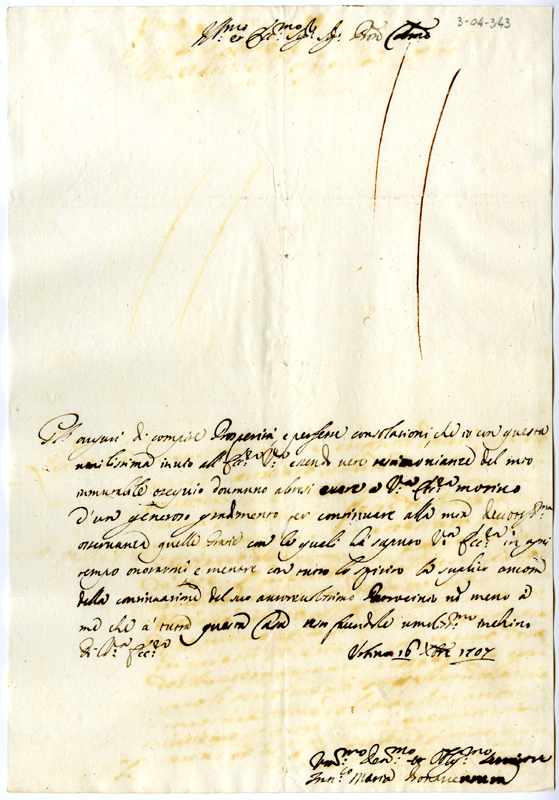 3-04-343
Ill.mo et Ecc.mo Sig. Sig. Pron Col.mo
Gl'auguri di compite Prosperità, e perfette consolazioni, che io con questa
umilissima invio all'Ecc.za V.ra essendo vere testimonianze del mio
immutabile ossequio douranno altresi essere a V.ra Ecc.za motivo
d'un generoso gradimento per continuare alla mia deuotiss.ma
osseruanza quelle Grazie con le quali hà saputo V.ra Ecc.za in ogni
tempo onorarmi e mentre con tutto lo spirito la supplico ancora
della continuazione del suo autoreuolissimo Patrocinio nō meno à
me che a' tutta questa Casa facendole umiliss.mo inchino
di V.ra Ecc.za
16 Xbre 1707
Um.mo Deu.mo et Obl.mo Seruitore
Fran.co Maria Bonauentura